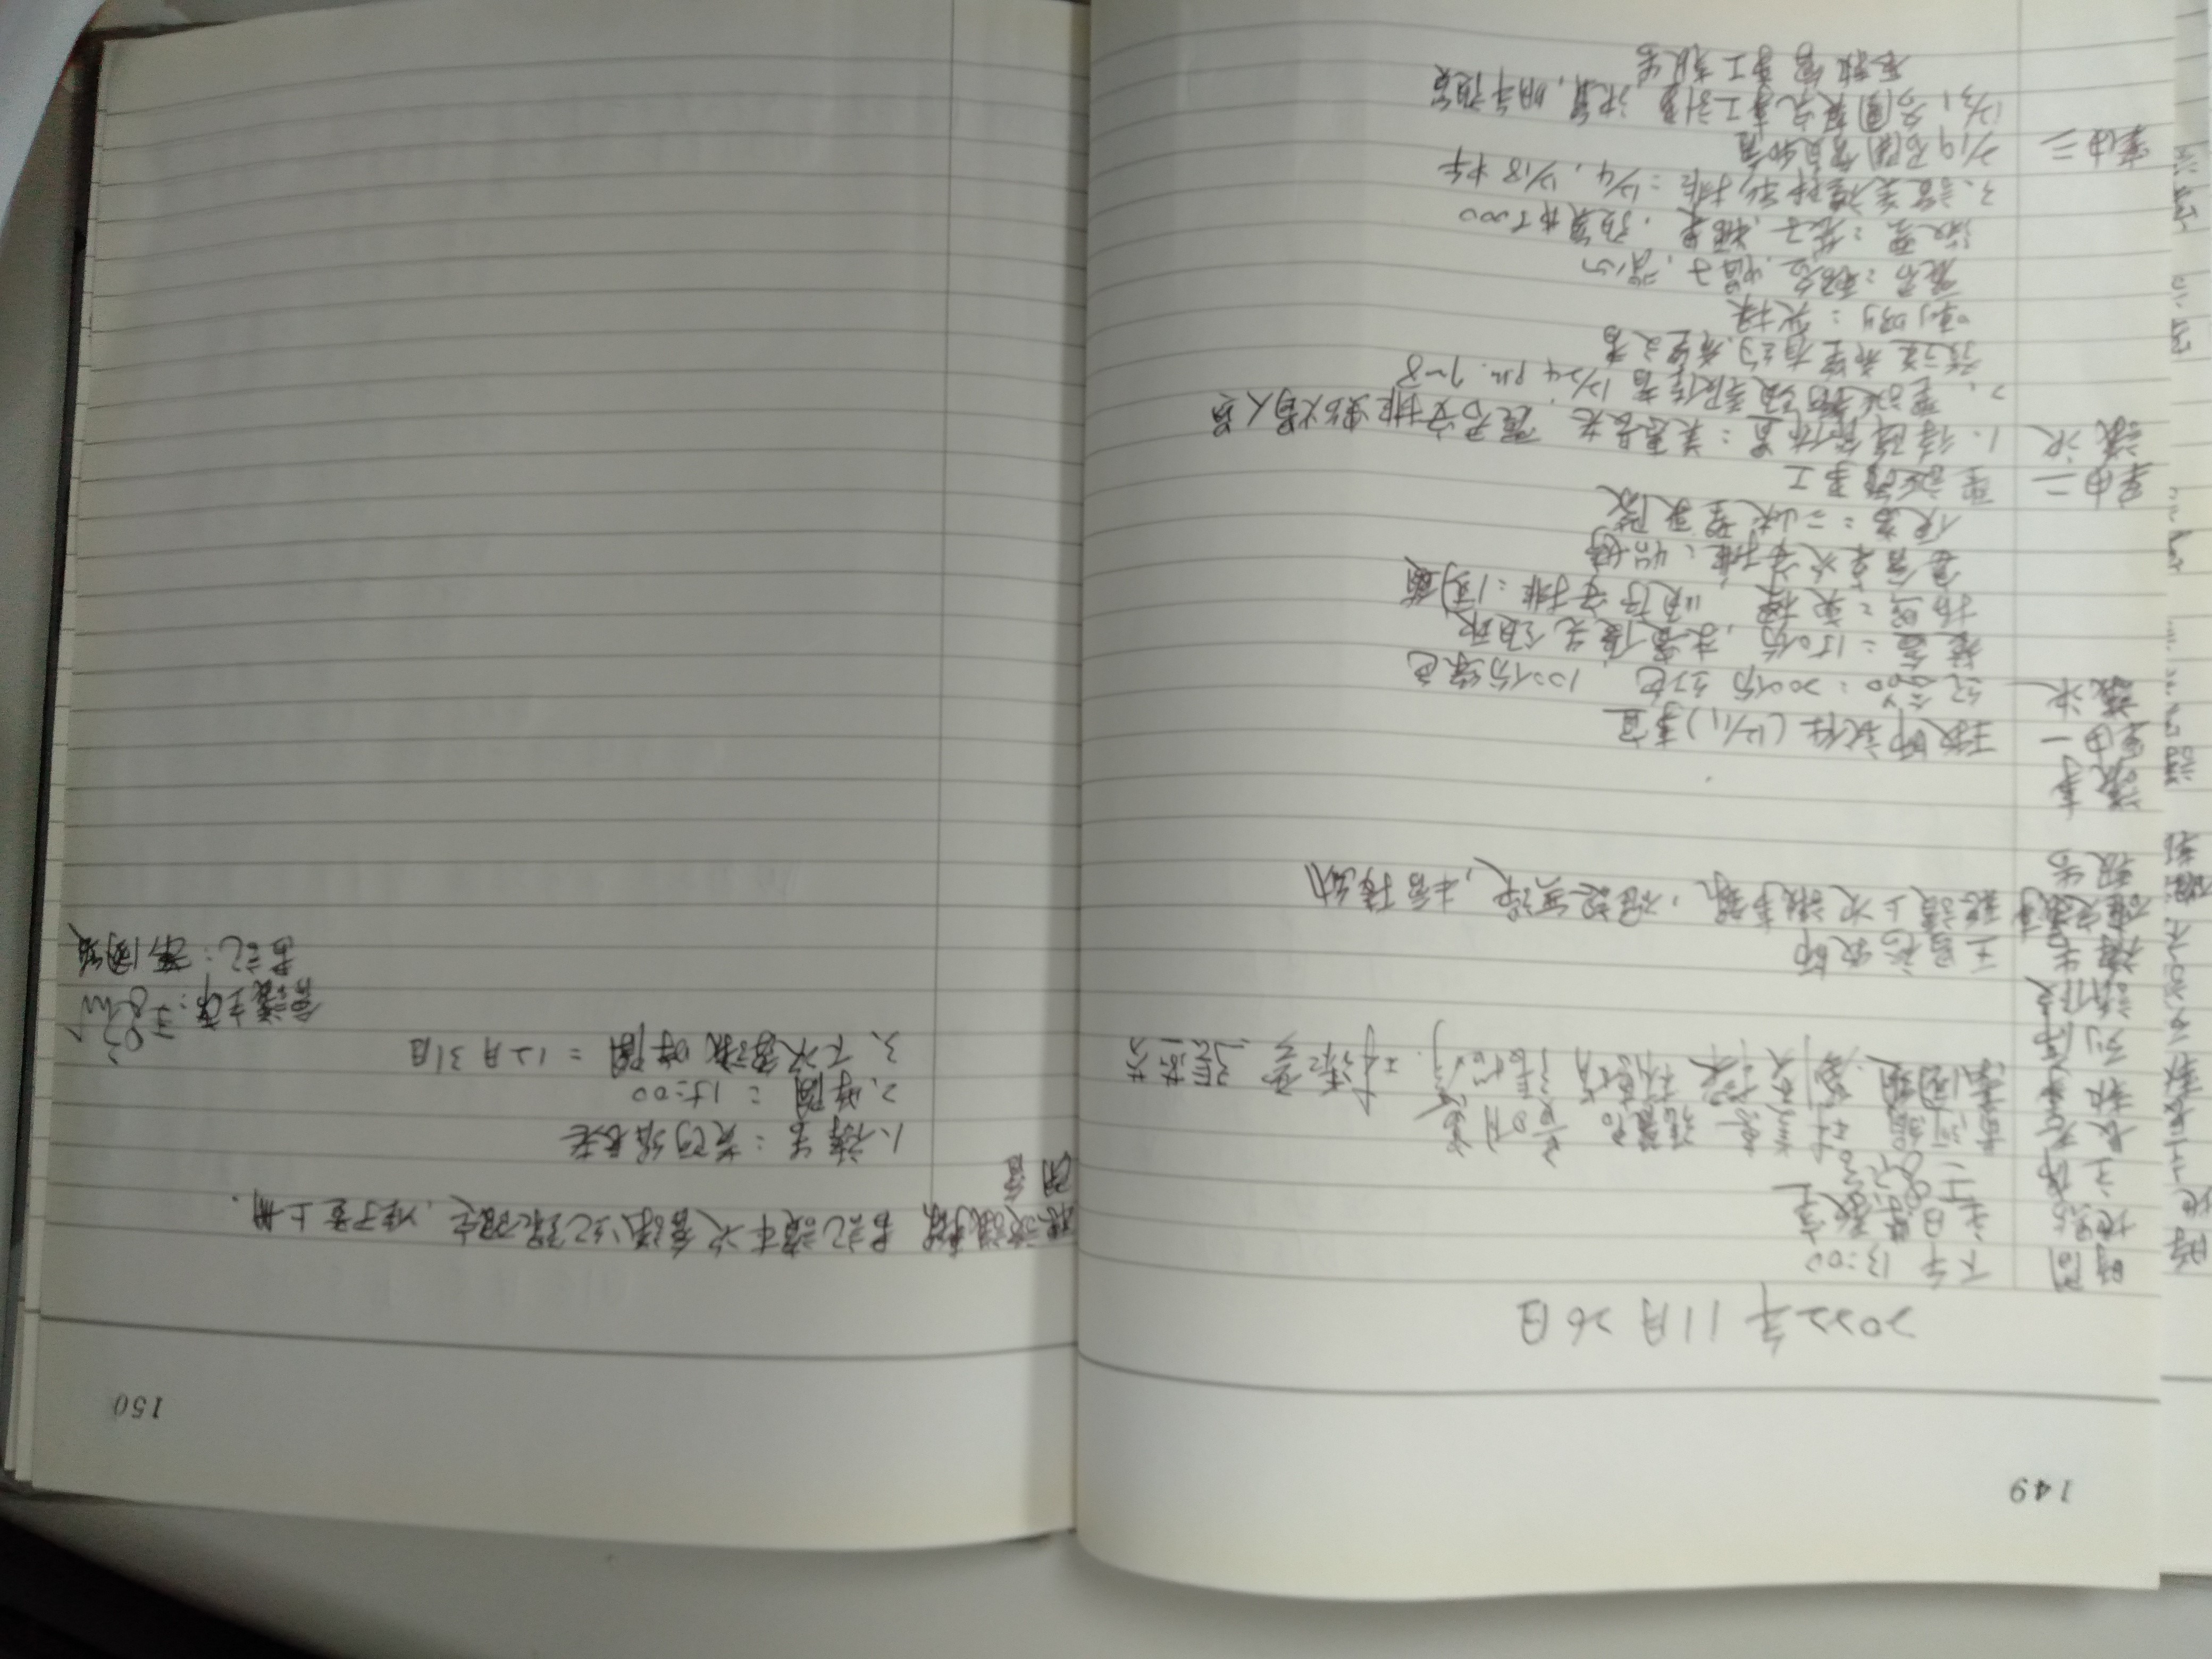 149
2022年 11月 26日
時間 下午 13:00
地點 主日學教室
主席 王昌裕
長老 黃阿絹 林美惠 張麗君 黃明惠
執事 蕭國鎮 劉奕樑 林惠娟 張怡婷 林淑雲 張燕芬
列席
請假
禱告 王昌裕牧師
確定議事 聽讀上次議事錄,確認無誤,本會接納
報告
議事
案由一 王牧師就任(12/11)事宜
議決 紀念品:200份 紅色,100份綠色
餐盒:150份,來賓優先領取
拍照:奕樑,順序安排:國鎮
宴會桌次安排:怡婷
便當:三峽聖歌隊
案由二 聖誕節事工
議決 1、待降節佈置:美惠長老,麗君安排點燭人員
2、聖誕街頭報佳音 12/24 p.m. 7~8
發送希望有約、希望文書
喇叭:奕樑
麗君:報名、帽子、背心
淑雲:袋子、糖果,預算$5000
3、讚美禮拜彩排:12/4,12/18 中午
案由三 2/19召開會員和會
12/31 各團契完事工計劃,決算,明年預算
長執會事工報告
150
聽讀議事錄 書記讀本次會議紀錄確定,准予登上冊.
閉會
1、禱告:黃阿絹長老
2、時間:15:00
3、下次會議時間:12月31日
會議主席:王
書記:蕭國鎮